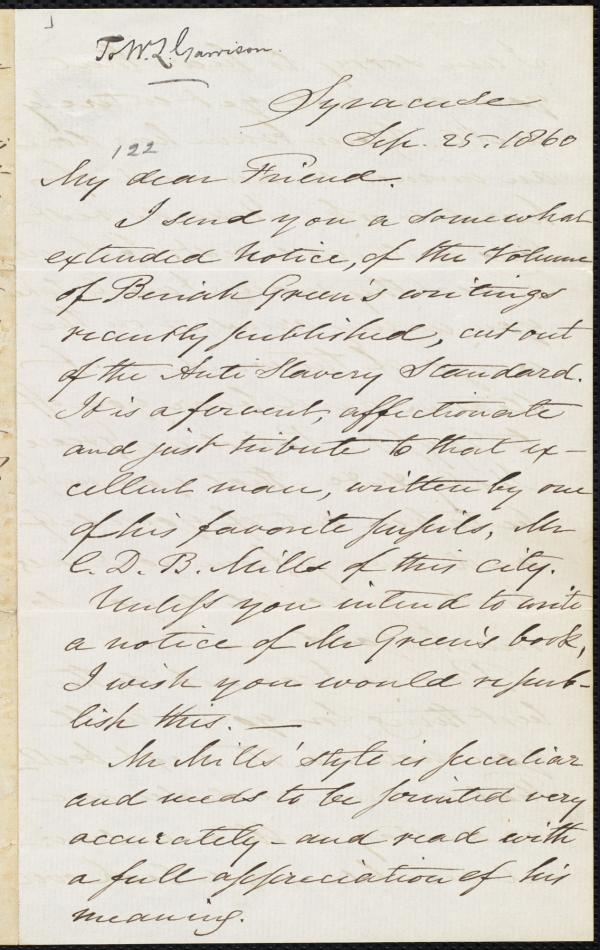 To W. L. Garrison.
Syracuse
Sep. 25, 1860
122
My dear Friend.
I send you a somewhat
extended notice, of the volume
of Beriah Green's writings
recently published, cut out
of the Anti Slavery Standard.
It is a fervent, affectionate
and just tribute to that ex-
cellent man, written by one
of his favorite pupils, Mr
C. D. B. Mills of this city.
Unless you intend to write
a notice of Mr Green's book,
I wish you would repub-
lish this. —
Mr Mills' style is peculiar
and needs to be printed very
accurately - and read with
a full appreciation of his
meaning.